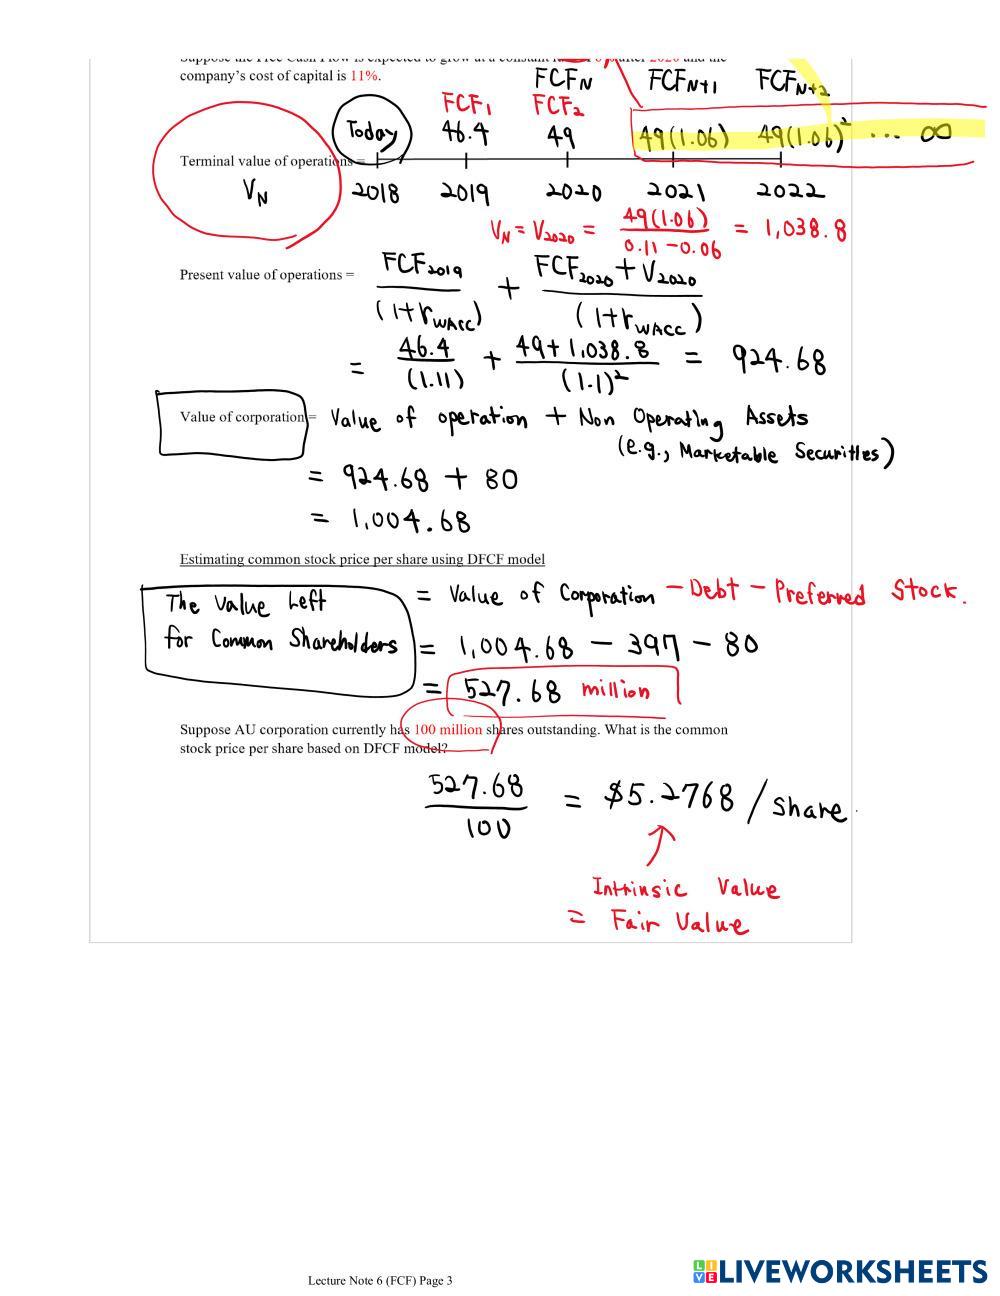 Suppose the Free Cash Flow is expected to grow at a constant after 2020 and the
company's cost of capital is 11%.
FCF_N FCF_N+1 FCF_N+2
FCF_1 FCF_2
Today 46.4 49 49(1.06) 49(1.06)^2 ... ∞
Terminal value of operations =
V_N 2018 2019 2020 2021 2022
V_N = V_2020 = 49(1.06) / 0.11-0.06 = 1,038.8
Present value of operations = FCF_2019 / (1+r_WACC) + FCF_2020 + V_2020 / (1+r_WACC)
= 46.4 / (1.11) + 49+1,038.8 / (1.1)^2 = 924.68
Value of corporation = Value of operation + Non Operating Assets
(e.g., Marketable Securities)
= 924.68 + 80
= 1,004.68
Estimating common stock price per share using DFCF model
The Value Left
for Common Shareholders
= Value of Corporation - Debt - Preferred Stock.
= 1,004.68 - 397 - 80
= 527.68 million
Suppose AU corporation currently has 100 million shares outstanding. What is the common
stock price per share based on DFCF model?
527.68 / 100 = $5.2768 / share
Intrinsic Value
= Fair Value
Lecture Note 6 (FCF) Page 3
LIVE LIVEWORKSHEETS